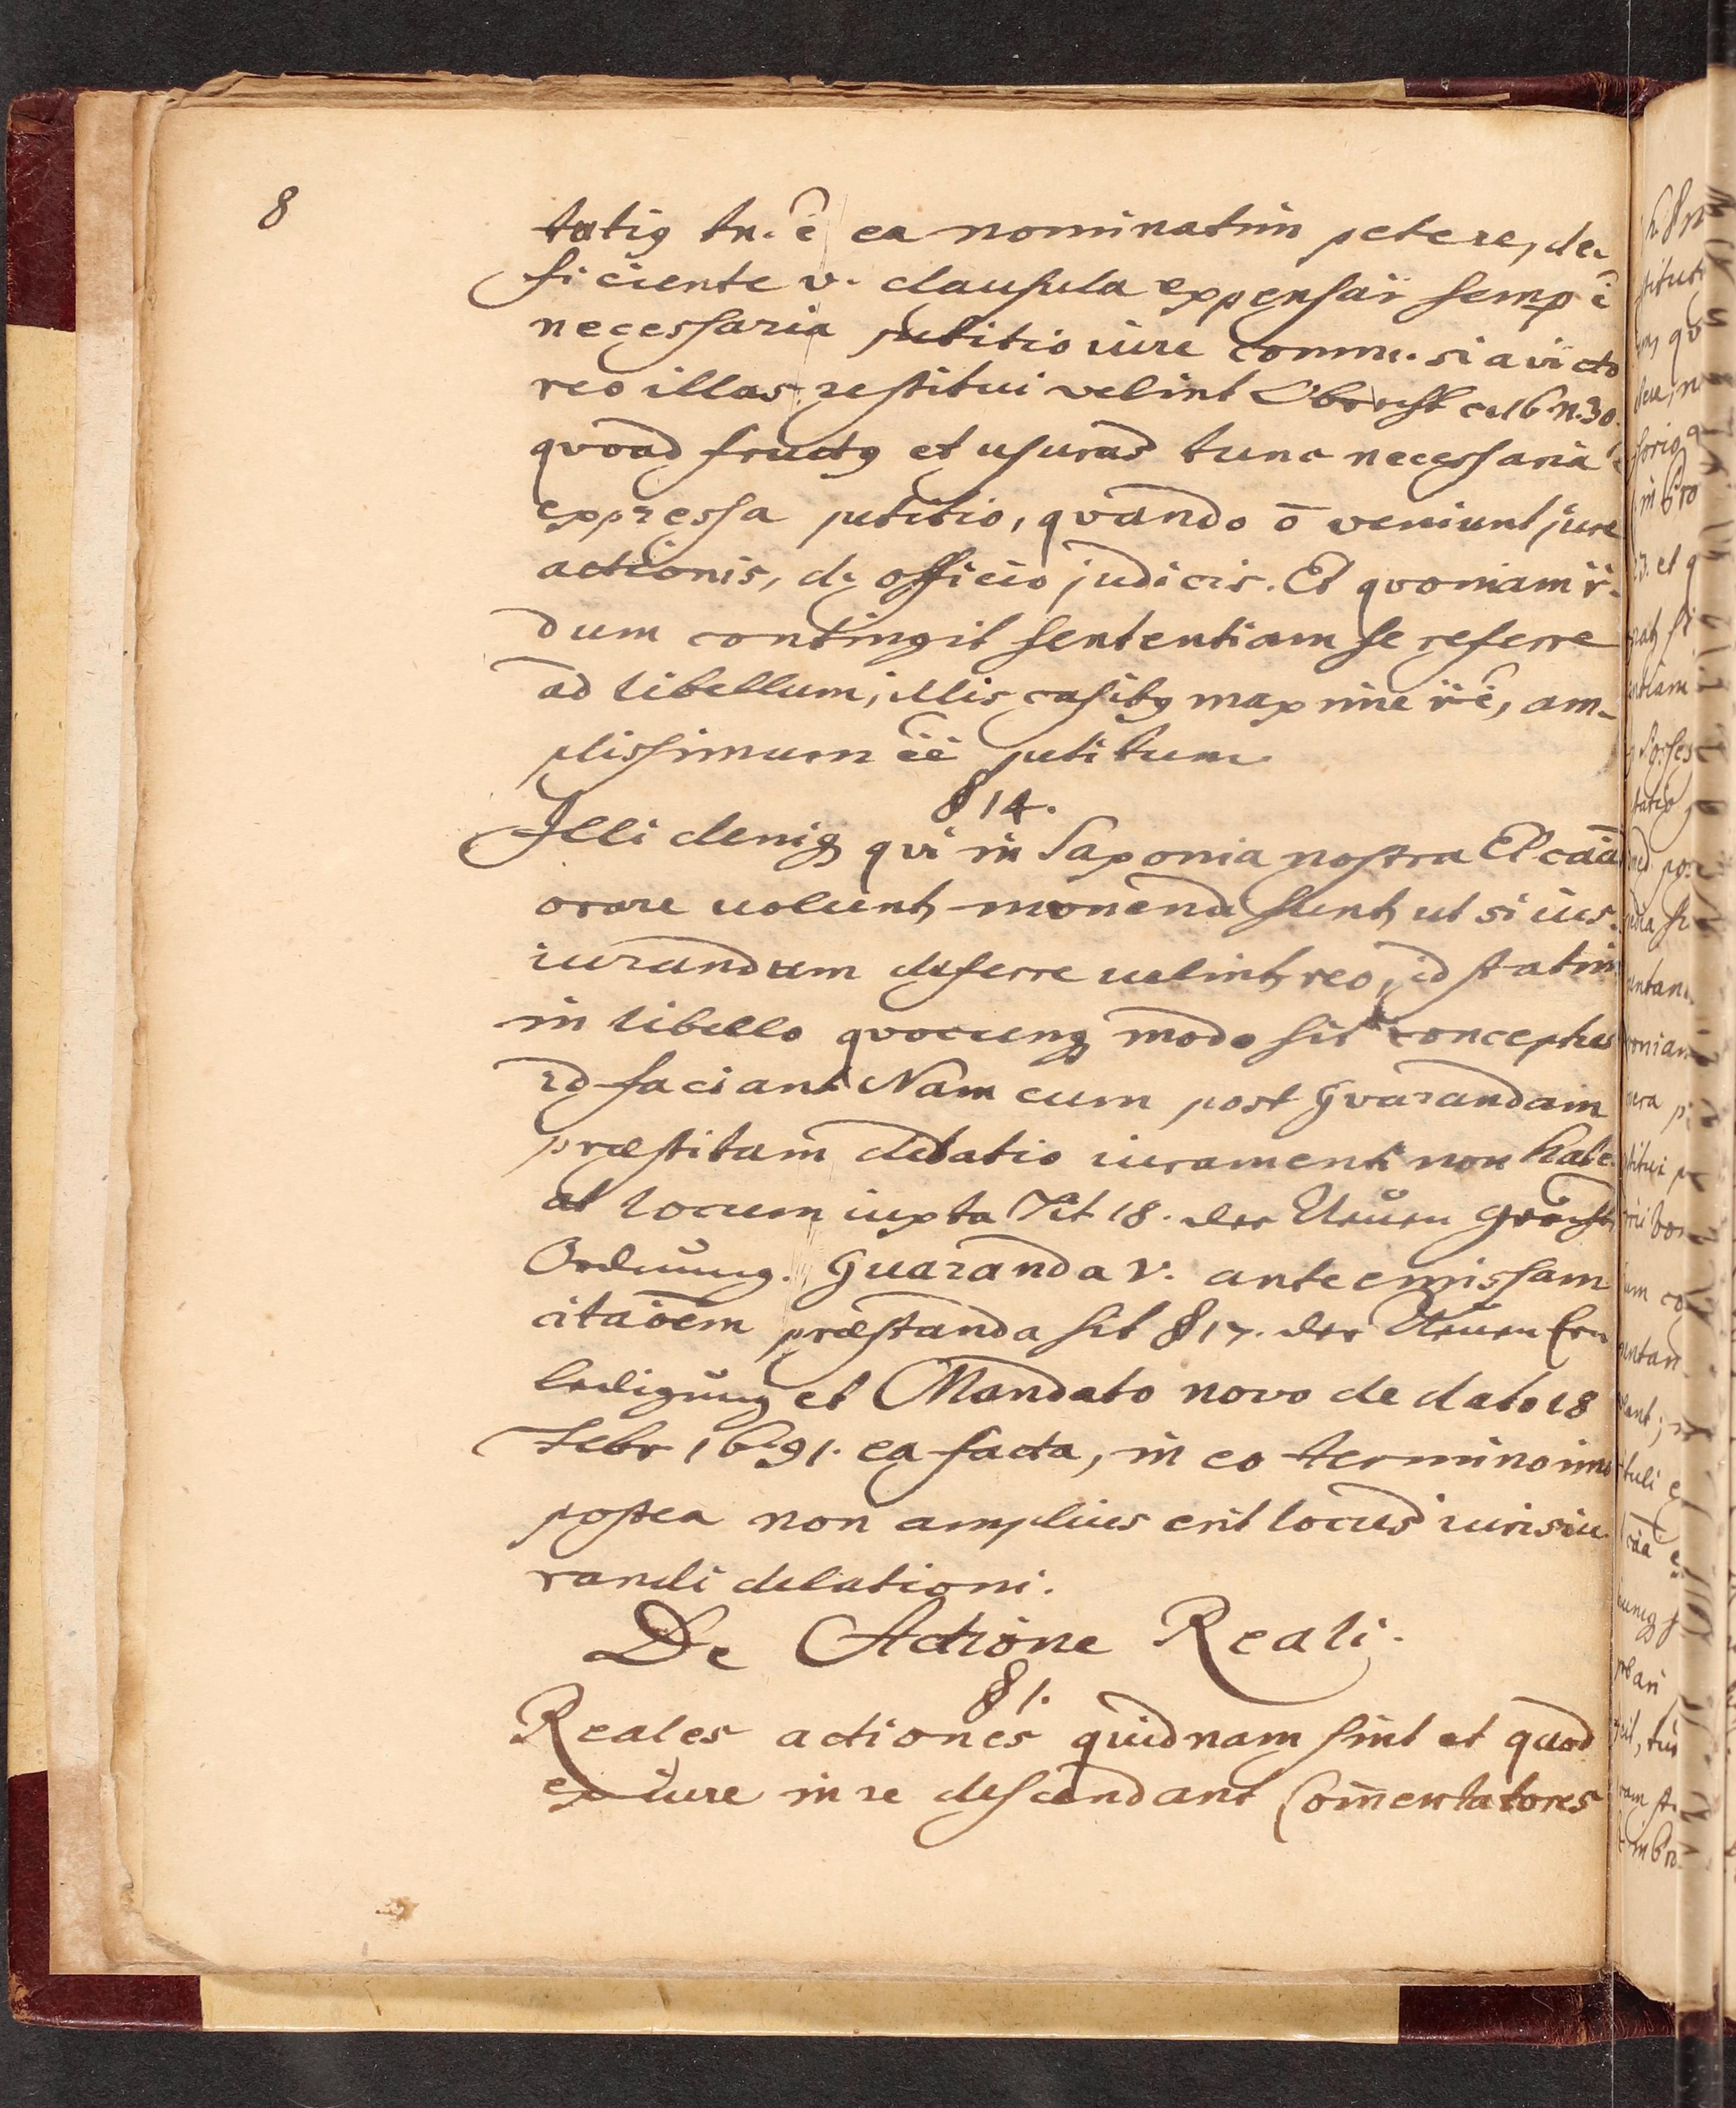 8
tatig tn. ē ea nominatim petere, de-
ficiente v. clausula expensar semp ē
necessaria petitio iure commu. si a victo
reo illas restitui velint c. 16. n. 30.
qvoad fructg et usuras tunc necessaria ē
expressa petitio, qvando ō veniunt jure
actionis, de officio judicis. Et qvoniam ï.
dum contingit sententiam se referre
ad libellum, illis casibg maxime ē, am-
plissimum ēē petitum.
§ 14.
Illi deniq qvi in Saxonia nostra El caā
orare uolunt, monendi sunt, ut si ius-
iurandum deferre uelint reo, id statim
in libello qvocunq modo sit conceptus
id faciant Nam cum post Gvarandam
præstitam delatio iuramenti non habe-
at locum iuxta Tit 18. der Neŭen Gerichts
Ordnŭng. Guaranda v. ante emissam
citaōem præstanda sit § 17. der Neŭen Er-
ledigŭng et Mandato novo de dato 18
Febr 1691. ea facta, in eo termino imo
postea non amplius erit locus iurisiu-
randi delationi.
De Actione Reali.
§ 1.
Reales actiones quidnam sint et quod
ex iure in re descendant Com̄entatores